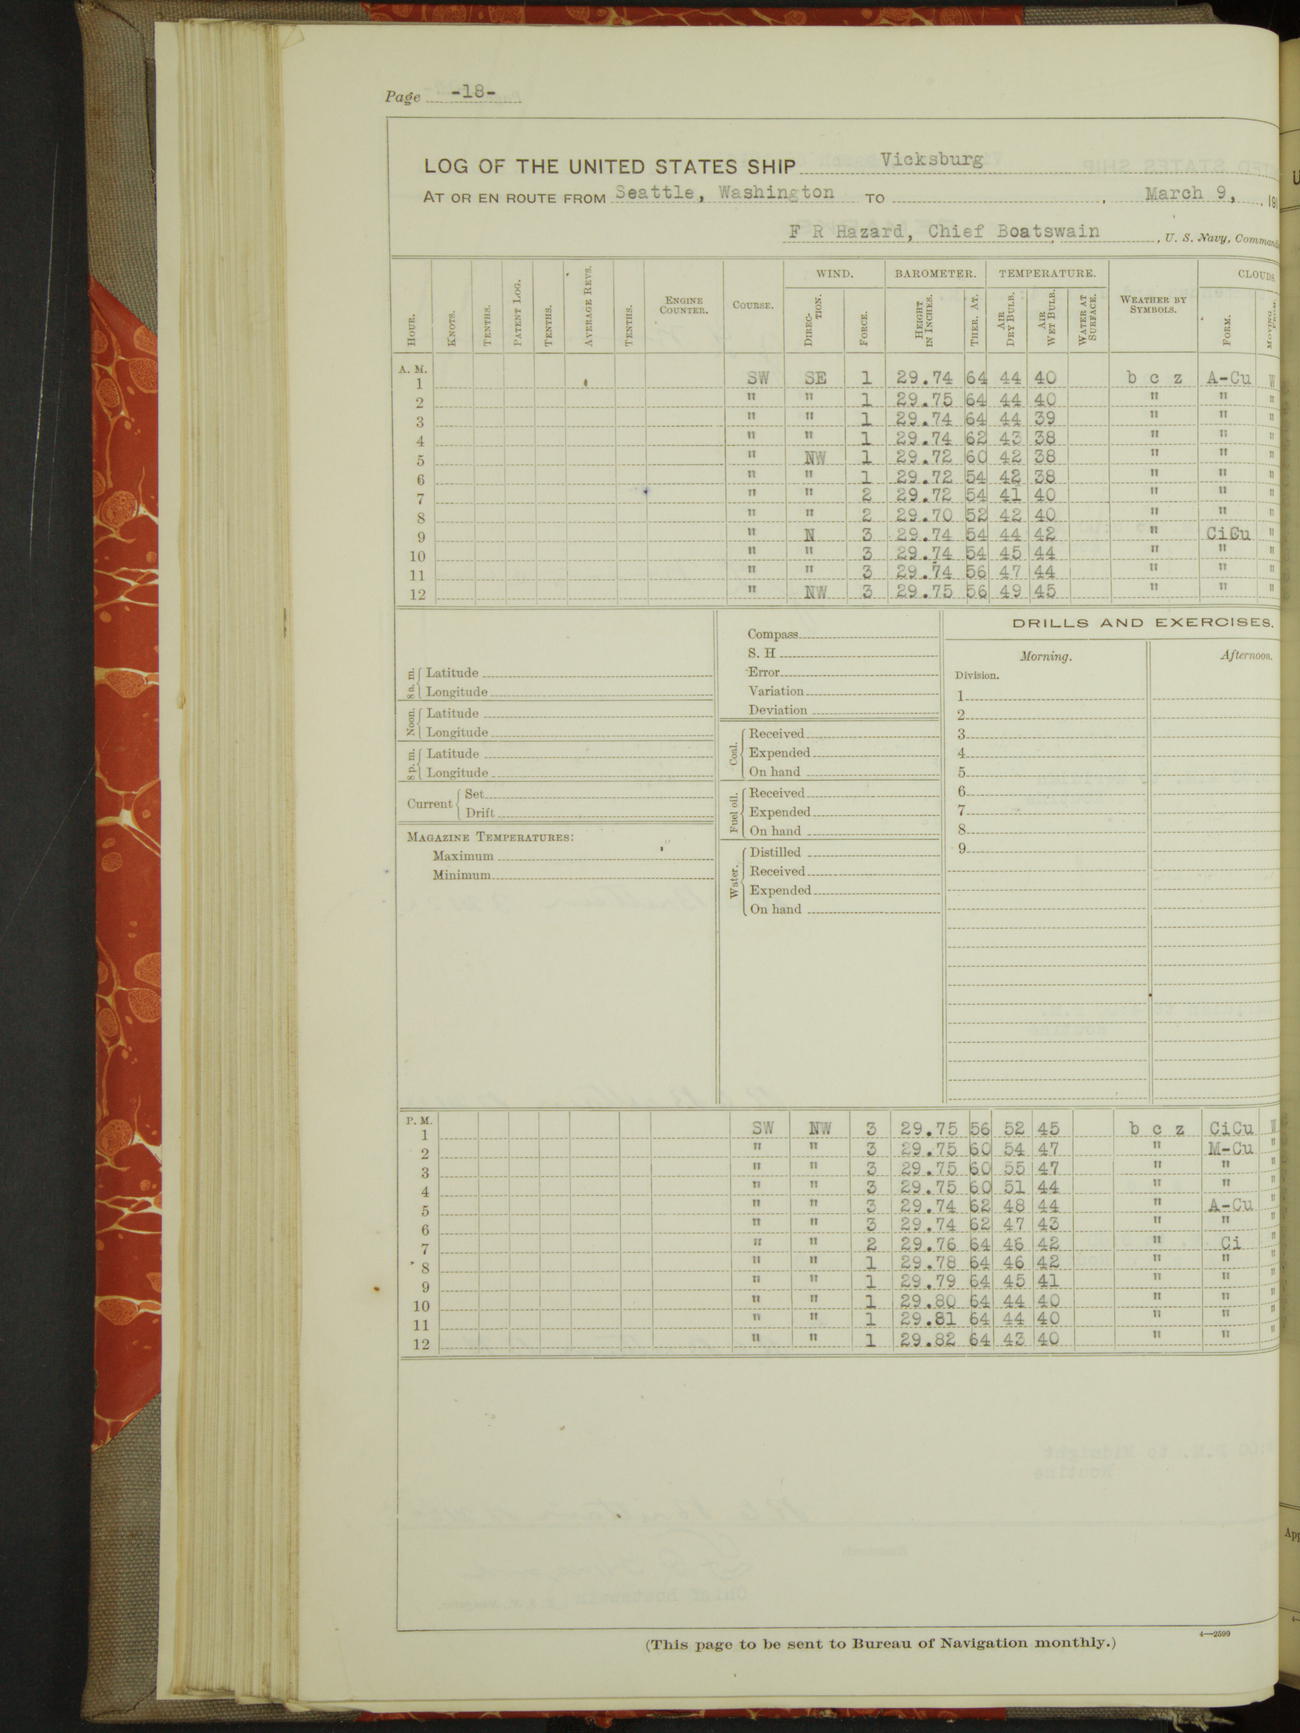 Page -18-
LOG OF THE UNITED STATES SHIP Vicksburg
AT OR EN ROUTE FROM Seattle, Washington TO , March 9, , 19
F R Hazard, Chief Boatswain , U. S. Navy, Command
HOUR. KNOTS. TENTHS. PATENT LOG. TENTHS. AVERAGE REVS. TENTHS. ENGINE COUNTER. COURSE. WIND. DIRECTION. FORCE. BAROMETER. HEIGHT IN INCHES. THER. AT. TEMPERATURE. AIR DRY BULB. AIR WET BULB. WATER AT SURFACE. WEATHER BY SYMBOLS. CLOUDS FORM. MOVING
A. M.
1 SW SE 1 29.74 64 44 40 b c z A-Cu W
2 " " 1 29.75 64 44 40 " " "
3 " " 1 29.74 64 44 39 " " "
4 " " 1 29.74 62 43 38 " " "
5 " NW 1 29.72 60 42 38 " " "
6 " " 1 29.72 54 42 38 " " "
7 " " 2 29.72 54 41 40 " " "
8 " " 2 29.70 52 42 40 " " "
9 " N 3 29.74 54 44 42 " CiCu "
10 " " 3 29.74 54 45 44 " " "
11 " " 3 29.74 56 47 44 " " "
12 " NW 3 29.75 56 49 45 " " "
8 a. m. Latitude
Longitude
Noon. Latitude
Longitude
8 p. m. Latitude
Longitude
Current Set
Drift
MAGAZINE TEMPERATURES:
Maximum
Minimum
Compass
S. H
Error
Variation
Deviation
Coal. Received
Expended
On hand
Fuel oil. Received
Expended
On hand
Water. Distilled
Received
Expended
On hand
DRILLS AND EXERCISES.
Morning. Afternoon.
Division.
1
2
3
4
5
6
7
8
9
P. M.
1 SW NW 3 29.75 56 52 45 b c z CiCu W
2 " " 3 29.75 60 54 47 " M-Cu "
3 " " 3 29.75 60 55 47 " " "
4 " " 3 29.75 60 51 44 " " "
5 " " 3 29.74 62 48 44 " A-Cu "
6 " " 3 29.74 62 47 43 " " "
7 " " 2 29.76 64 46 42 " Ci "
8 " " 1 29.78 64 46 42 " " "
9 " " 1 29.79 64 45 41 " " "
10 " " 1 29.80 64 44 40 " " "
11 " " 1 29.81 64 44 40 " " "
12 " " 1 29.82 64 43 40 " " "
(This page to be sent to Bureau of Navigation monthly.)
4—2599